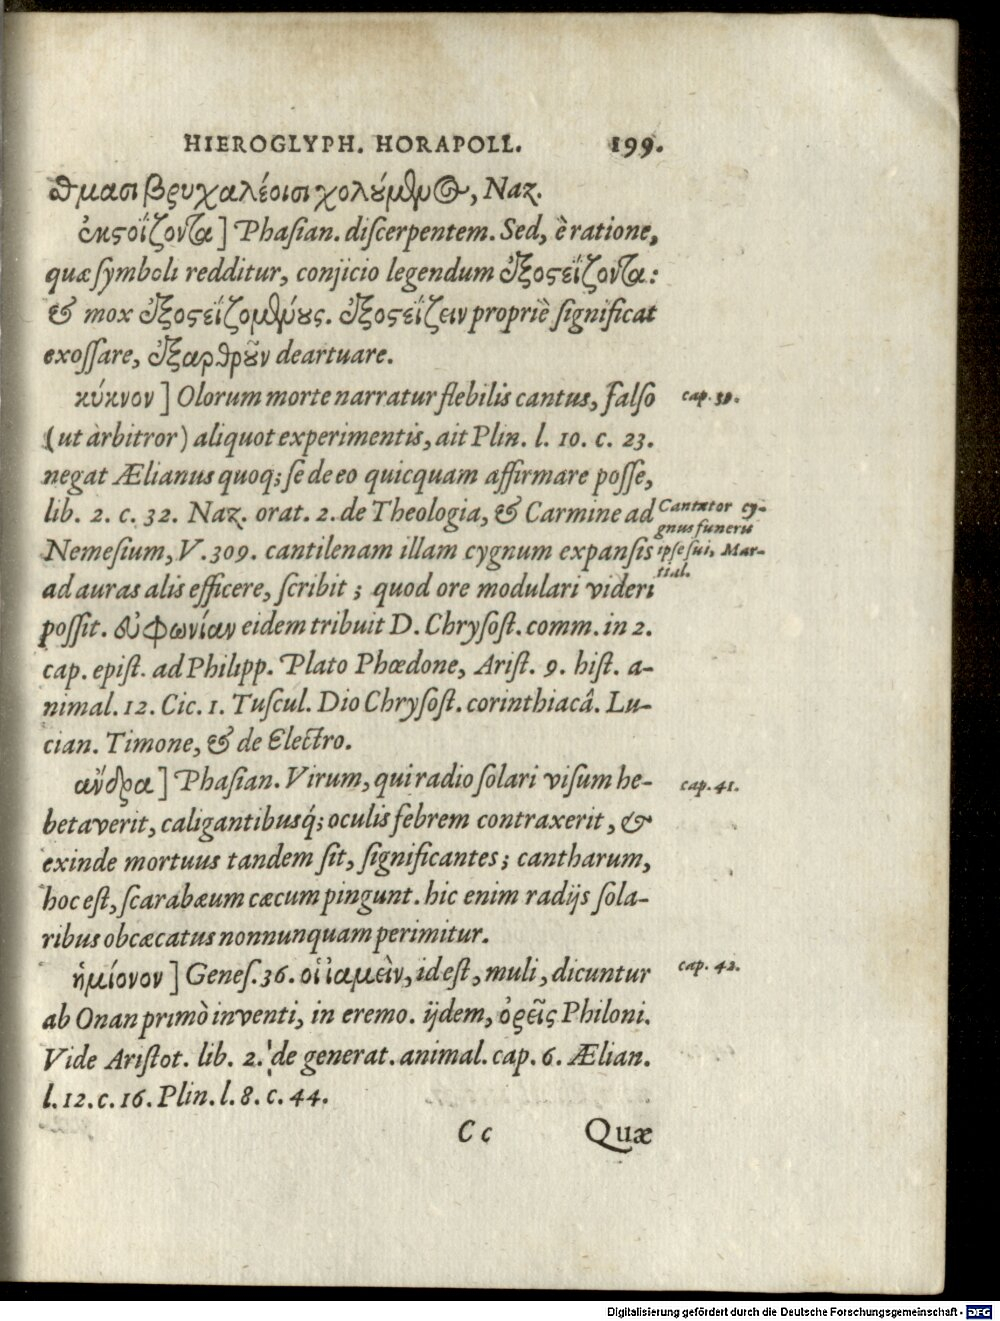 HIEROGLYPH. HORAPOLL. 199.
θμασι βρυχαλέοισι χολούμενος, Naz.
ἐκστοΐζοντα] Phasian. discerpentem. Sed, è ratione,
quæ symboli redditur, conjicio legendum ἐξοστεΐζοντα:
& mox ἐξοστεϊζομένους. ἐξοστεΐζειν propriè significat
exossare, ἐξαρθροῦν deartuare.
κύκνον] Olorum morte narratur flebilis cantus, falso
cap. 39.
(ut arbitror) aliquot experimentis, ait Plin. l. 10. c. 23.
negat Ælianus quoq; se de eo quicquam affirmare posse,
lib. 2. c. 32. Naz. orat. 2. de Theologia, & Carmine ad
Cantator cy-
gnus funeris
ipse sui, Mar-
tial.
Nemesium, V. 309. cantilenam illam cygnum expansis
ad auras alis efficere, scribit; quod ore modulari videri
possit. εὐφωνίαν eidem tribuit D. Chrysost. comm. in 2.
cap. epist. ad Philipp. Plato Phœdone, Arist. 9. hist. a-
nimal. 12. Cic. 1. Tuscul. Dio Chrysost. corinthiacâ. Lu-
cian. Timone, & de Electro.
ἄνδρα] Phasian. Virum, qui radio solari visum he-
cap. 41.
betaverit, caligantibusq́; oculis febrem contraxerit, &
exinde mortuus tandem sit, significantes; cantharum,
hoc est, scarabæum cæcum pingunt. hic enim radijs sola-
ribus obcæcatus nonnunquam perimitur.
ἡμίονον] Genes. 36. οἱ ἰαμεὶν, id est, muli, dicuntur
cap. 42.
ab Onan primò inventi, in eremo. ijdem, ὀρεῖς Philoni.
Vide Aristot. lib. 2. de generat. animal. cap. 6. Ælian.
l. 12. c. 16. Plin. l. 8. c. 44.
C c Quæ
Digitalisierung gefördert durch die Deutsche Forschungsgemeinschaft - DFG